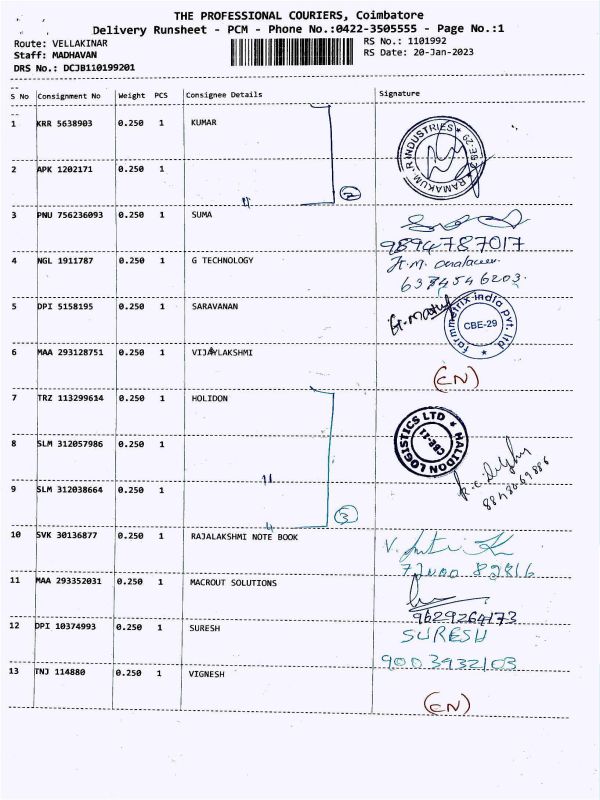 THE PROFESSIONAL COURIERS, Coimbatore
Delivery Runsheet - PCM - Phone No.:0422-3505555 - Page No.:1
Route: VELLAKINAR
RS No.: 1101992
Staff: MADHAVAN
RS Date: 20-Jan-2023
DRS No.: DCJB110199201
S No Consignment No Weight PCS Consignee Details Signature
1 KRR 5638903 0.250 1 KUMAR
RAMAKUM R INDUSTRIES ★ CBE-29 ★
2 APK 1202171 0.250 1
2
3 PNU 756236093 0.250 1 SUMA
9894787017
4 NGL 1911787 0.250 1 G TECHNOLOGY
6374546203.
5 DPI 5158195 0.250 1 SARAVANAN
farmmetrix india pvt. ltd ★
CBE-29
6 MAA 293128751 0.250 1 VIJAYLAKSHMI
(CN)
7 TRZ 113299614 1 0.250 HOLIDON
HALIDON LOGISTICS LTD ★
CBE-11
8 SLM 312057986 0.250 1
9 SLM 312038664 0.250 1
3
10 SVK 30136877 0.250 1 RAJALAKSHMI NOTE BOOK
11 MAA 293352031 0.250 1 MACROUT SOLUTIONS
9629264173
12 DPI 10374993 0.250 1 SURESH
SURESH
9003932103
13 TNJ 114880 0.250 1 VIGNESH
(CN)